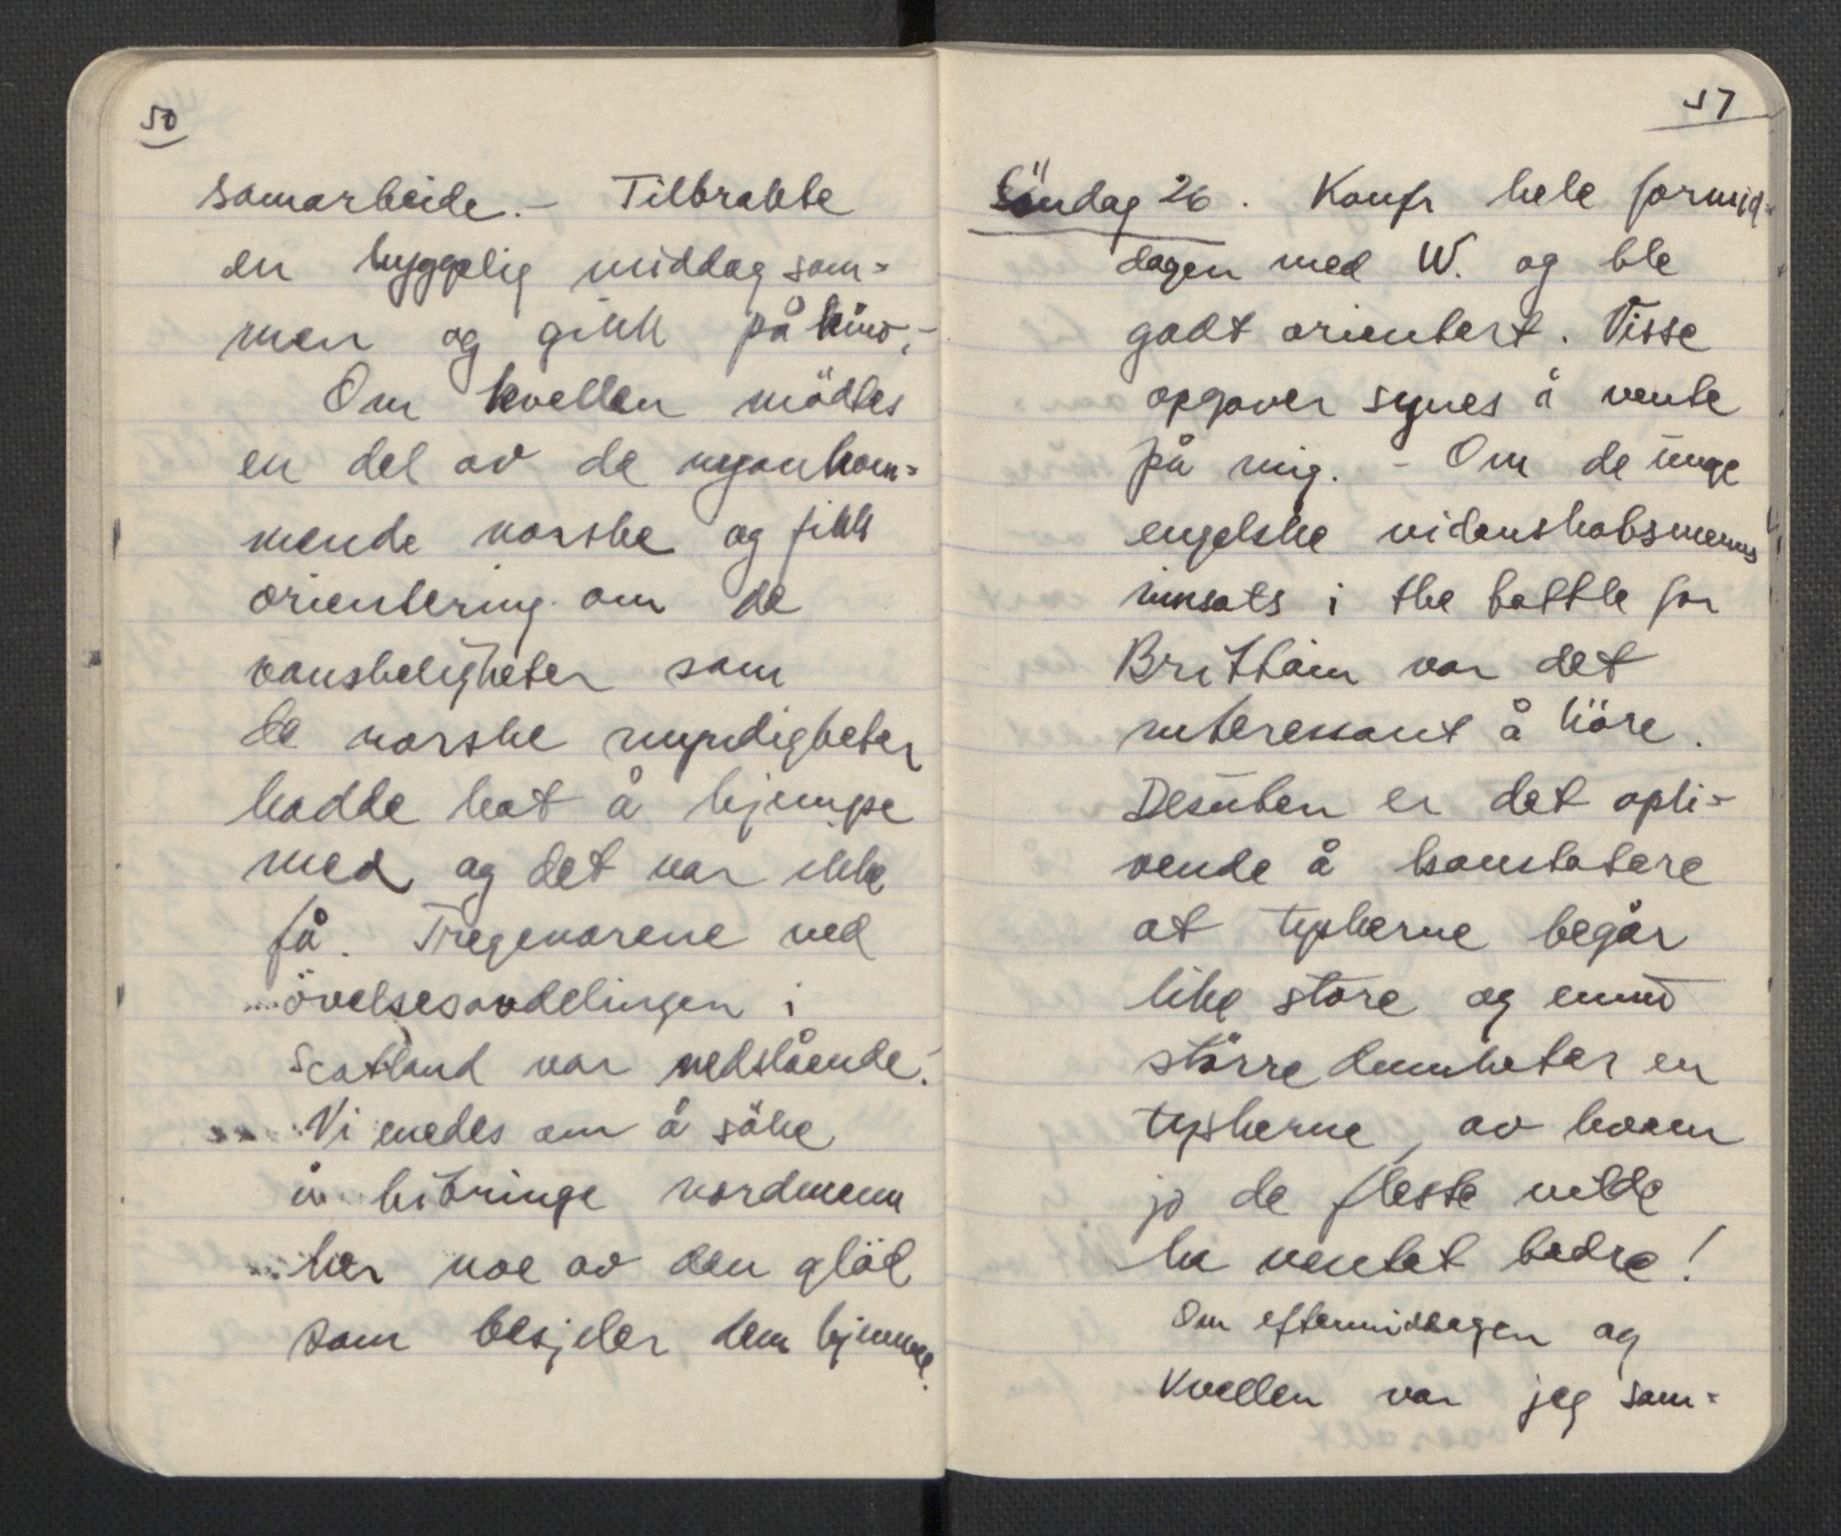 50
samarbeide. – Tilbrakte
en hyggelig middag sam=
men og gikk på kino. –
Om kvellen mödtes
en del av de nyankom=
mende norske og fikk
orientering om de
vanskeligheter som
de norske myndigheter
hadde hat å kjempe
med og det var ikke
få. Tregenarene ved
övelsesavdelingen i
Scotland var nedslående. –
Vi enedes om å söke
å bibringe nordmenn
her noe av den glöd
som besjeler dem hjemme.
51
Söndag 26. Konfr hele formid=
dagen med W. og ble
godt orientert. Visse
opgaver synes å vente
på mig. – Om de unge
engelske videnskabsmenns
innsats i the battle for
Brittain var det
interessant å höre.
Desuten er det opli=
vende å konstatere
at tyskerne begår
like store og ennå
större dumheter en
tyskerne, av hvem
jo de fleste vilde
ha ventet bedre!
Om eftermiddagen og
kvellen var jeg sam=